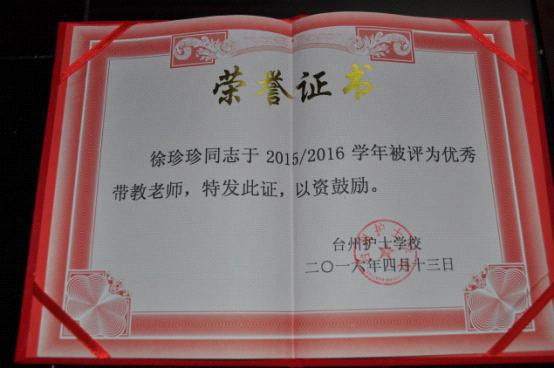 荣誉证书
徐珍珍同志于 2015/2016 学年被评为优秀
带教老师，特发此证，以资鼓励。
台州护士学校
二〇一六年四月十三日